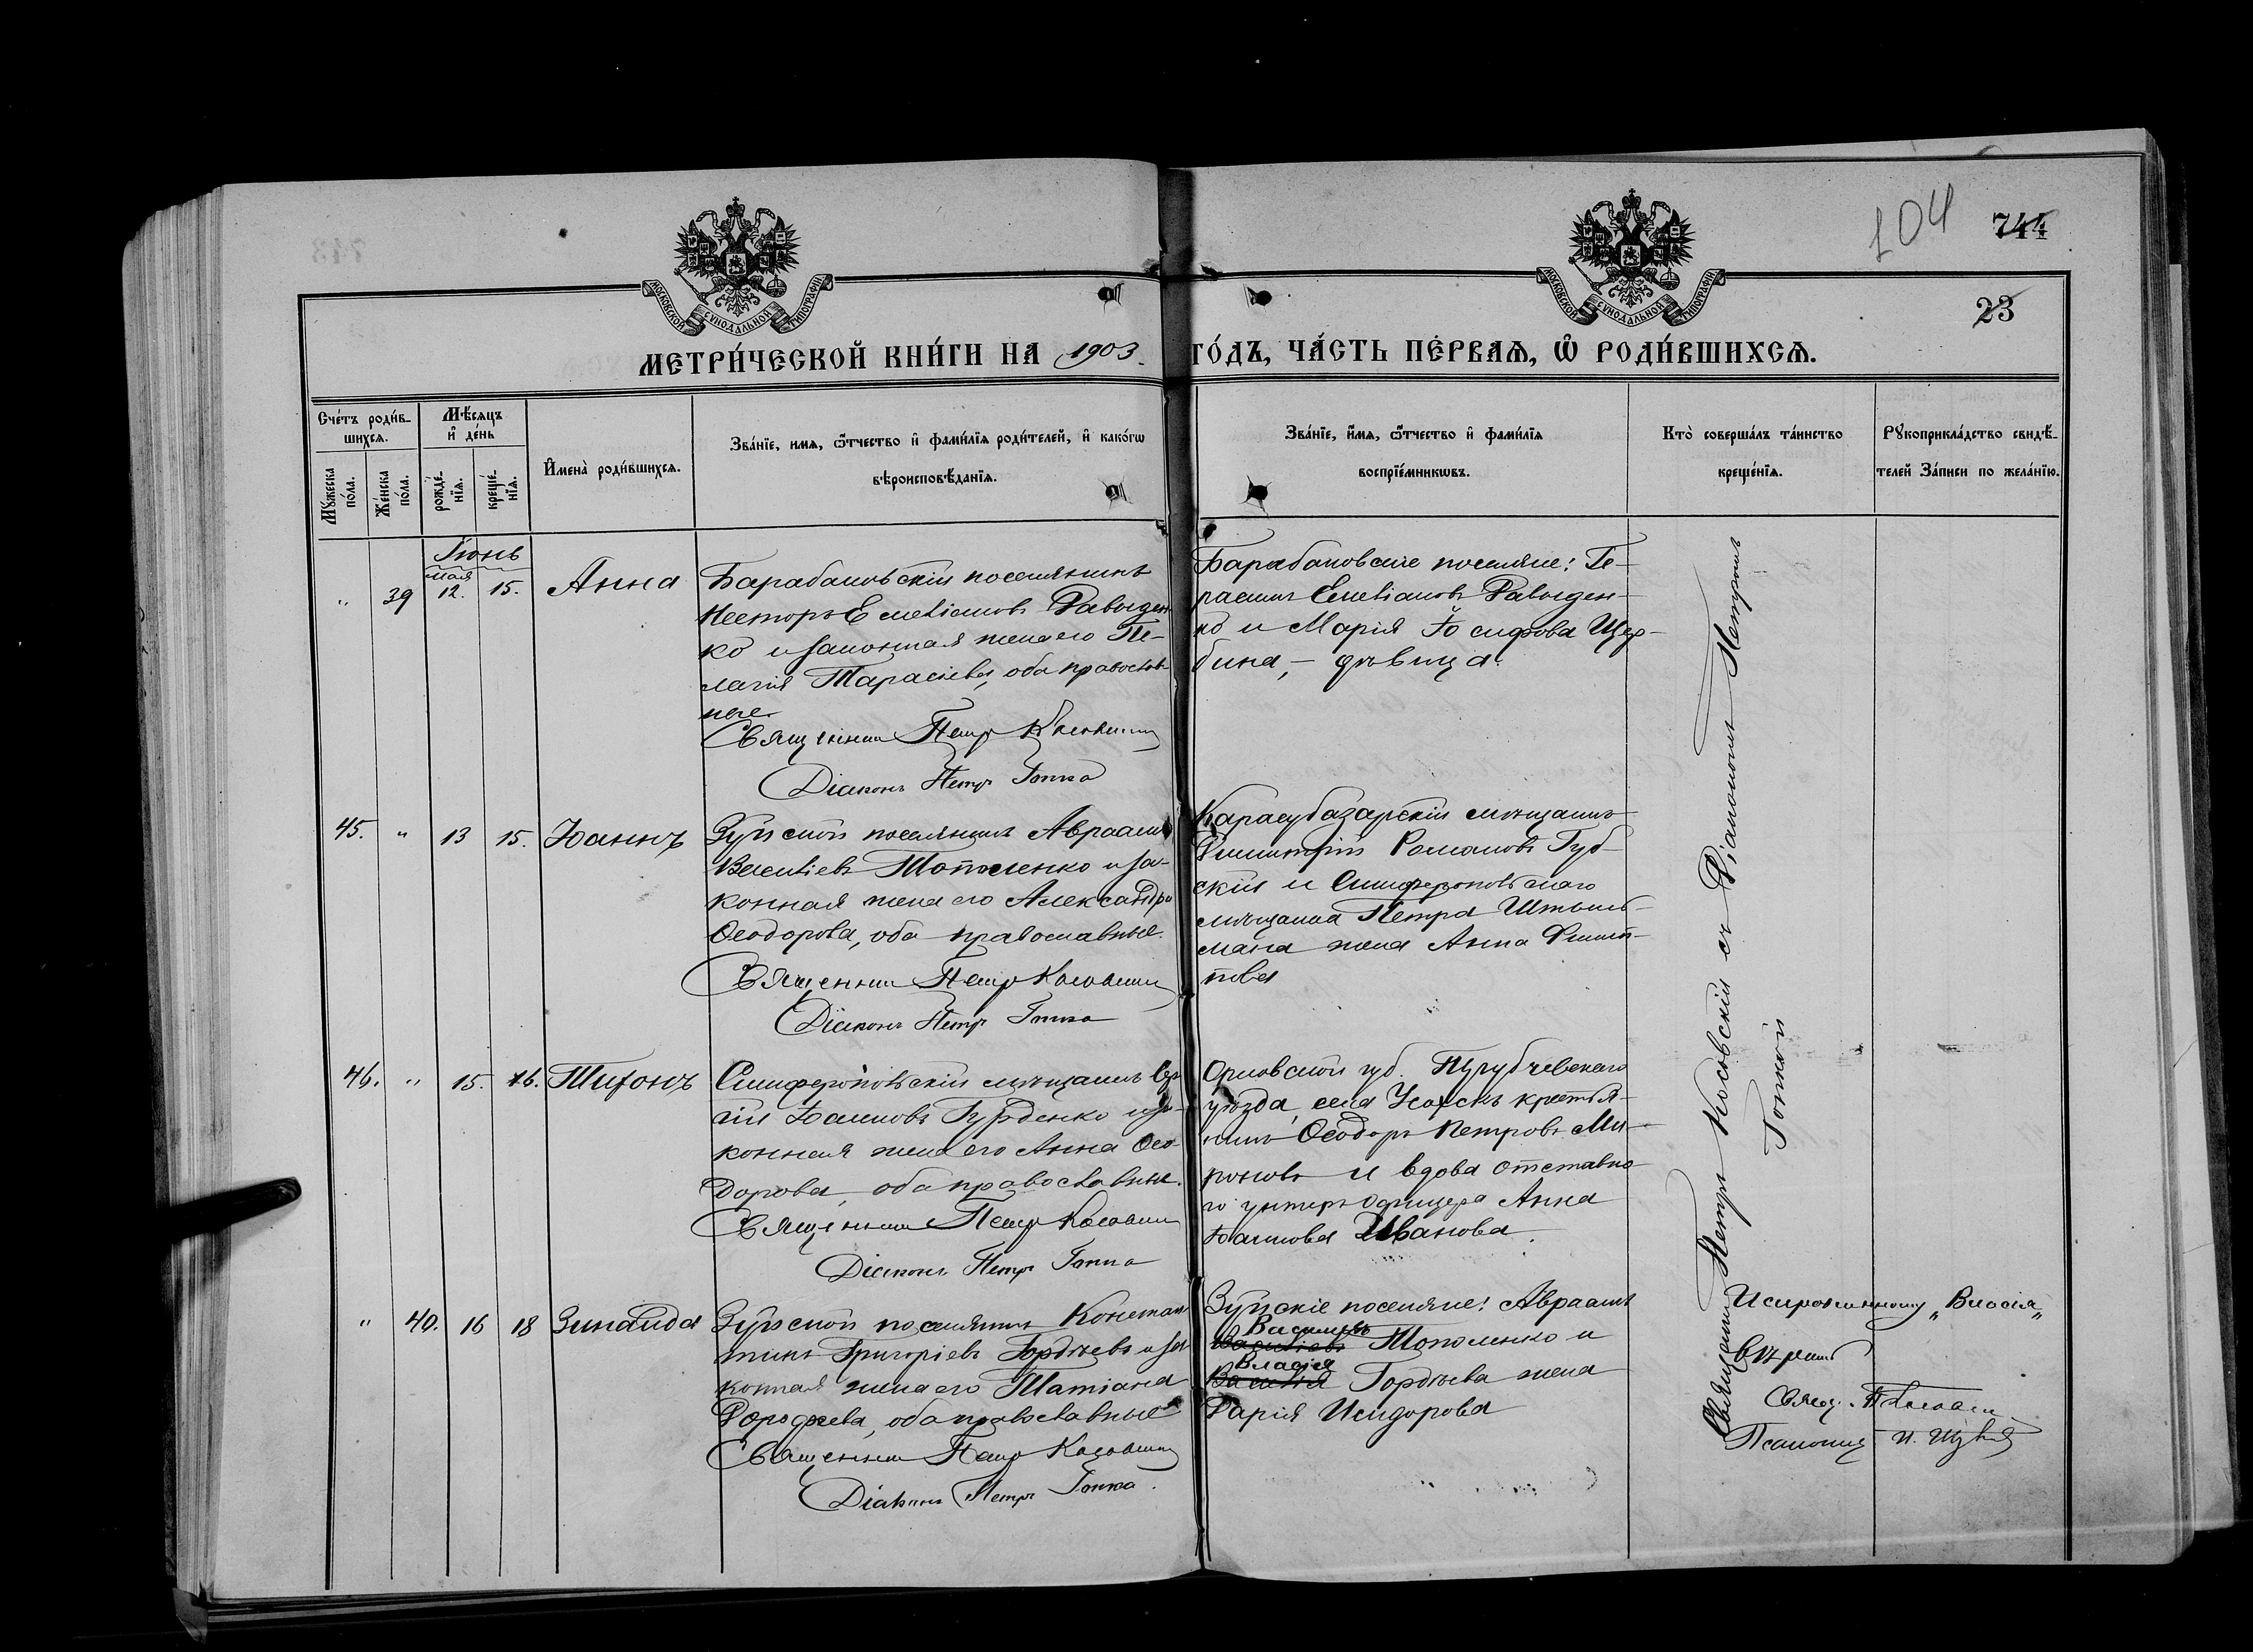 104
744
23
МОСКОВСКОЙ СѴНОДАЛЬНОЙ ТИПОГРАФІИ
МОСКОВСКОЙ СѴНОДАЛЬНОЙ ТИПОГРАФІИ
МЕТРИ́ЧЕСКОЙ КНИ́ГИ НА 1903 ГО́ДЪ, ЧА́СТЬ ПЕ́РВАѦ, Ѽ РОДИ́ВШИХСѦ.
Сче́тъ роди́в-
шихсѧ.
Мꙋ́жеска по́ла.
Же́нска по́ла.
Мѣ́сѧцъ
и҆ де́нь
рожде́нїѧ.
креще́нїѧ.
И҆мена̀ роди́вшихсѧ.
Зва́нїе, имѧ, ѻ҆́тчество и҆ фами́лїѧ роди́телей, и҆ како́гѡ
вѣроисповѣ́данїѧ.
Зва́нїе, и҆́мѧ, ѻ҆́тчество и҆ фами́лїѧ
воспрїе́мникѡвъ.
Кто̀ соверша́лъ та́инство
креще́нїѧ.
Рꙋкоприкла́дство свидѣ́-
телей За́писи по жела́нїю.
Іюнь
мая
" 39 12. 15. Анна
Барабановскій поселянинъ
Несторъ Емеліановъ Давыден
ко и законная жена его Пе-
лагія Тарасіева, оба православ
ные.
Священникъ Петръ Косовскій
Діаконъ Петръ Гопка
Барабановскіе поселяне: Ге-
расимъ Емеліановъ Давыден-
ко и Марія Іосифова Щер-
бина, – дѣвица.
45. " 13 15. Іоаннъ
Зуйской поселянинъ Авраамъ
Василіевъ Тополенко и за-
конная жена его Александра
Ѳеодорова, оба православные.
Священникъ Петръ Косовскій
Діаконъ Петръ Гопка
Карасубазарскій мѣщанинъ
Димитрій Романовъ Губ-
скій и Симферопольскаго
мѣщанина Петра Штыль-
мана жена Анна Филип-
пова
46. " 15. 16. Тихонъ
Симферопольскій мѣщанинъ Сер
гій Іоанновъ Гурденко и за-
конная жена его Анна Ѳео-
дорова, оба православные.
Священникъ Петръ Косовскій
Діаконъ Петръ Гопка
Орловской губ. Трубчевскаго
уѣзда, села крестья-
нинъ Ѳеодоръ Петровъ Ми-
роновъ и вдова отставно-
го унтеръ офицера Анна
Іоаннова Иванова.
" 40. 16 18 Зинаида
Зуйской поселянинъ Констан
тинъ Григоріевъ Гордѣевъ и за
конная жена его Татіана
Дорофеева, оба православные
Священникъ Петръ Косовскій
Діаконъ Петръ Гопка.
Зуйскіе поселяне: Авраамъ
Васильевъ
Василіевъ Тополенко и
Власія
Василія Гордѣева жена
Дарія Исидорова
Священникъ Петръ Косовскій съ Діакономъ Петромъ
Гопкой
Исправленному „Власія„
вѣрить
Свящ. П Косовскій
Псаломщ. И.